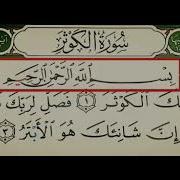 سُورَةُ الكَوْثَرِ
بِسْمِ اللَّهِ الرَّحْمَٰنِ الرَّحِيمِ
ـكَ الْكَوْثَرَ ١ فَصَلِّ لِرَبِّكَ
إِنَّ شَانِئَكَ هُوَ الْأَبْتَرُ ٣